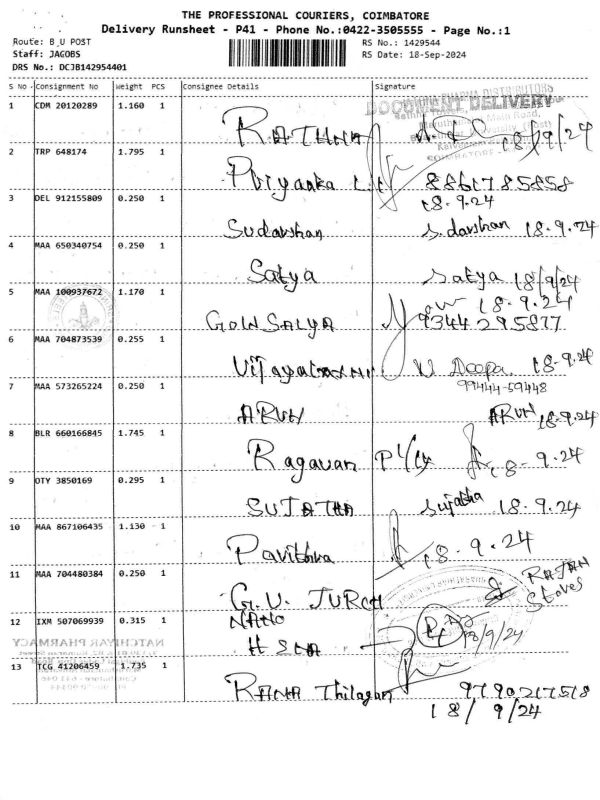 THE PROFESSIONAL COURIERS, COIMBATORE
Delivery Runsheet - P41 - Phone No.:0422-3505555 - Page No.:1
Route: B_U POST
RS No.: 1429544
Staff: JAGOBS
RS Date: 18-Sep-2024
DRS No.: DCJB142954401
S No Consignment No Weight PCS Consignee Details Signature
1 CDM 20120289 1.160 1 RATHNA 18/9/24
DOCUMENT DELIVERY
2 TRP 648174 1.795 1 Priyanka 8861785858
18.9.24
3 DEL 912155809 0.250 1 Sudarshan S.darshan 18.9.24
4 MAA 650340754 0.250 1 Satya Satya 18/9/24
5 MAA 100937672 1.170 1 18.9.24
9344295877
6 MAA 704873539 0.255 1 V Deepa 18.9.24
99444-59448
7 MAA 573265224 0.250 1 ARUN ARUN 18.9.24
8 BLR 660166845 1.745 1 Ragavan 18-9.24
9 OTY 3850169 0.295 1 SUJATHA Sujatha 18.9.24
10 MAA 867106435 1.130 1 Pavithra 18.9.24
11 MAA 704480384 0.250 1 G.U. RAJAN
Stores
12 IXM 507069939 0.315 1 NANO 18/9/24
NATCHIYAR PHARMACY
13 TCG 41206459 1.735 1 RANA Thilagan 9790217518
18/9/24